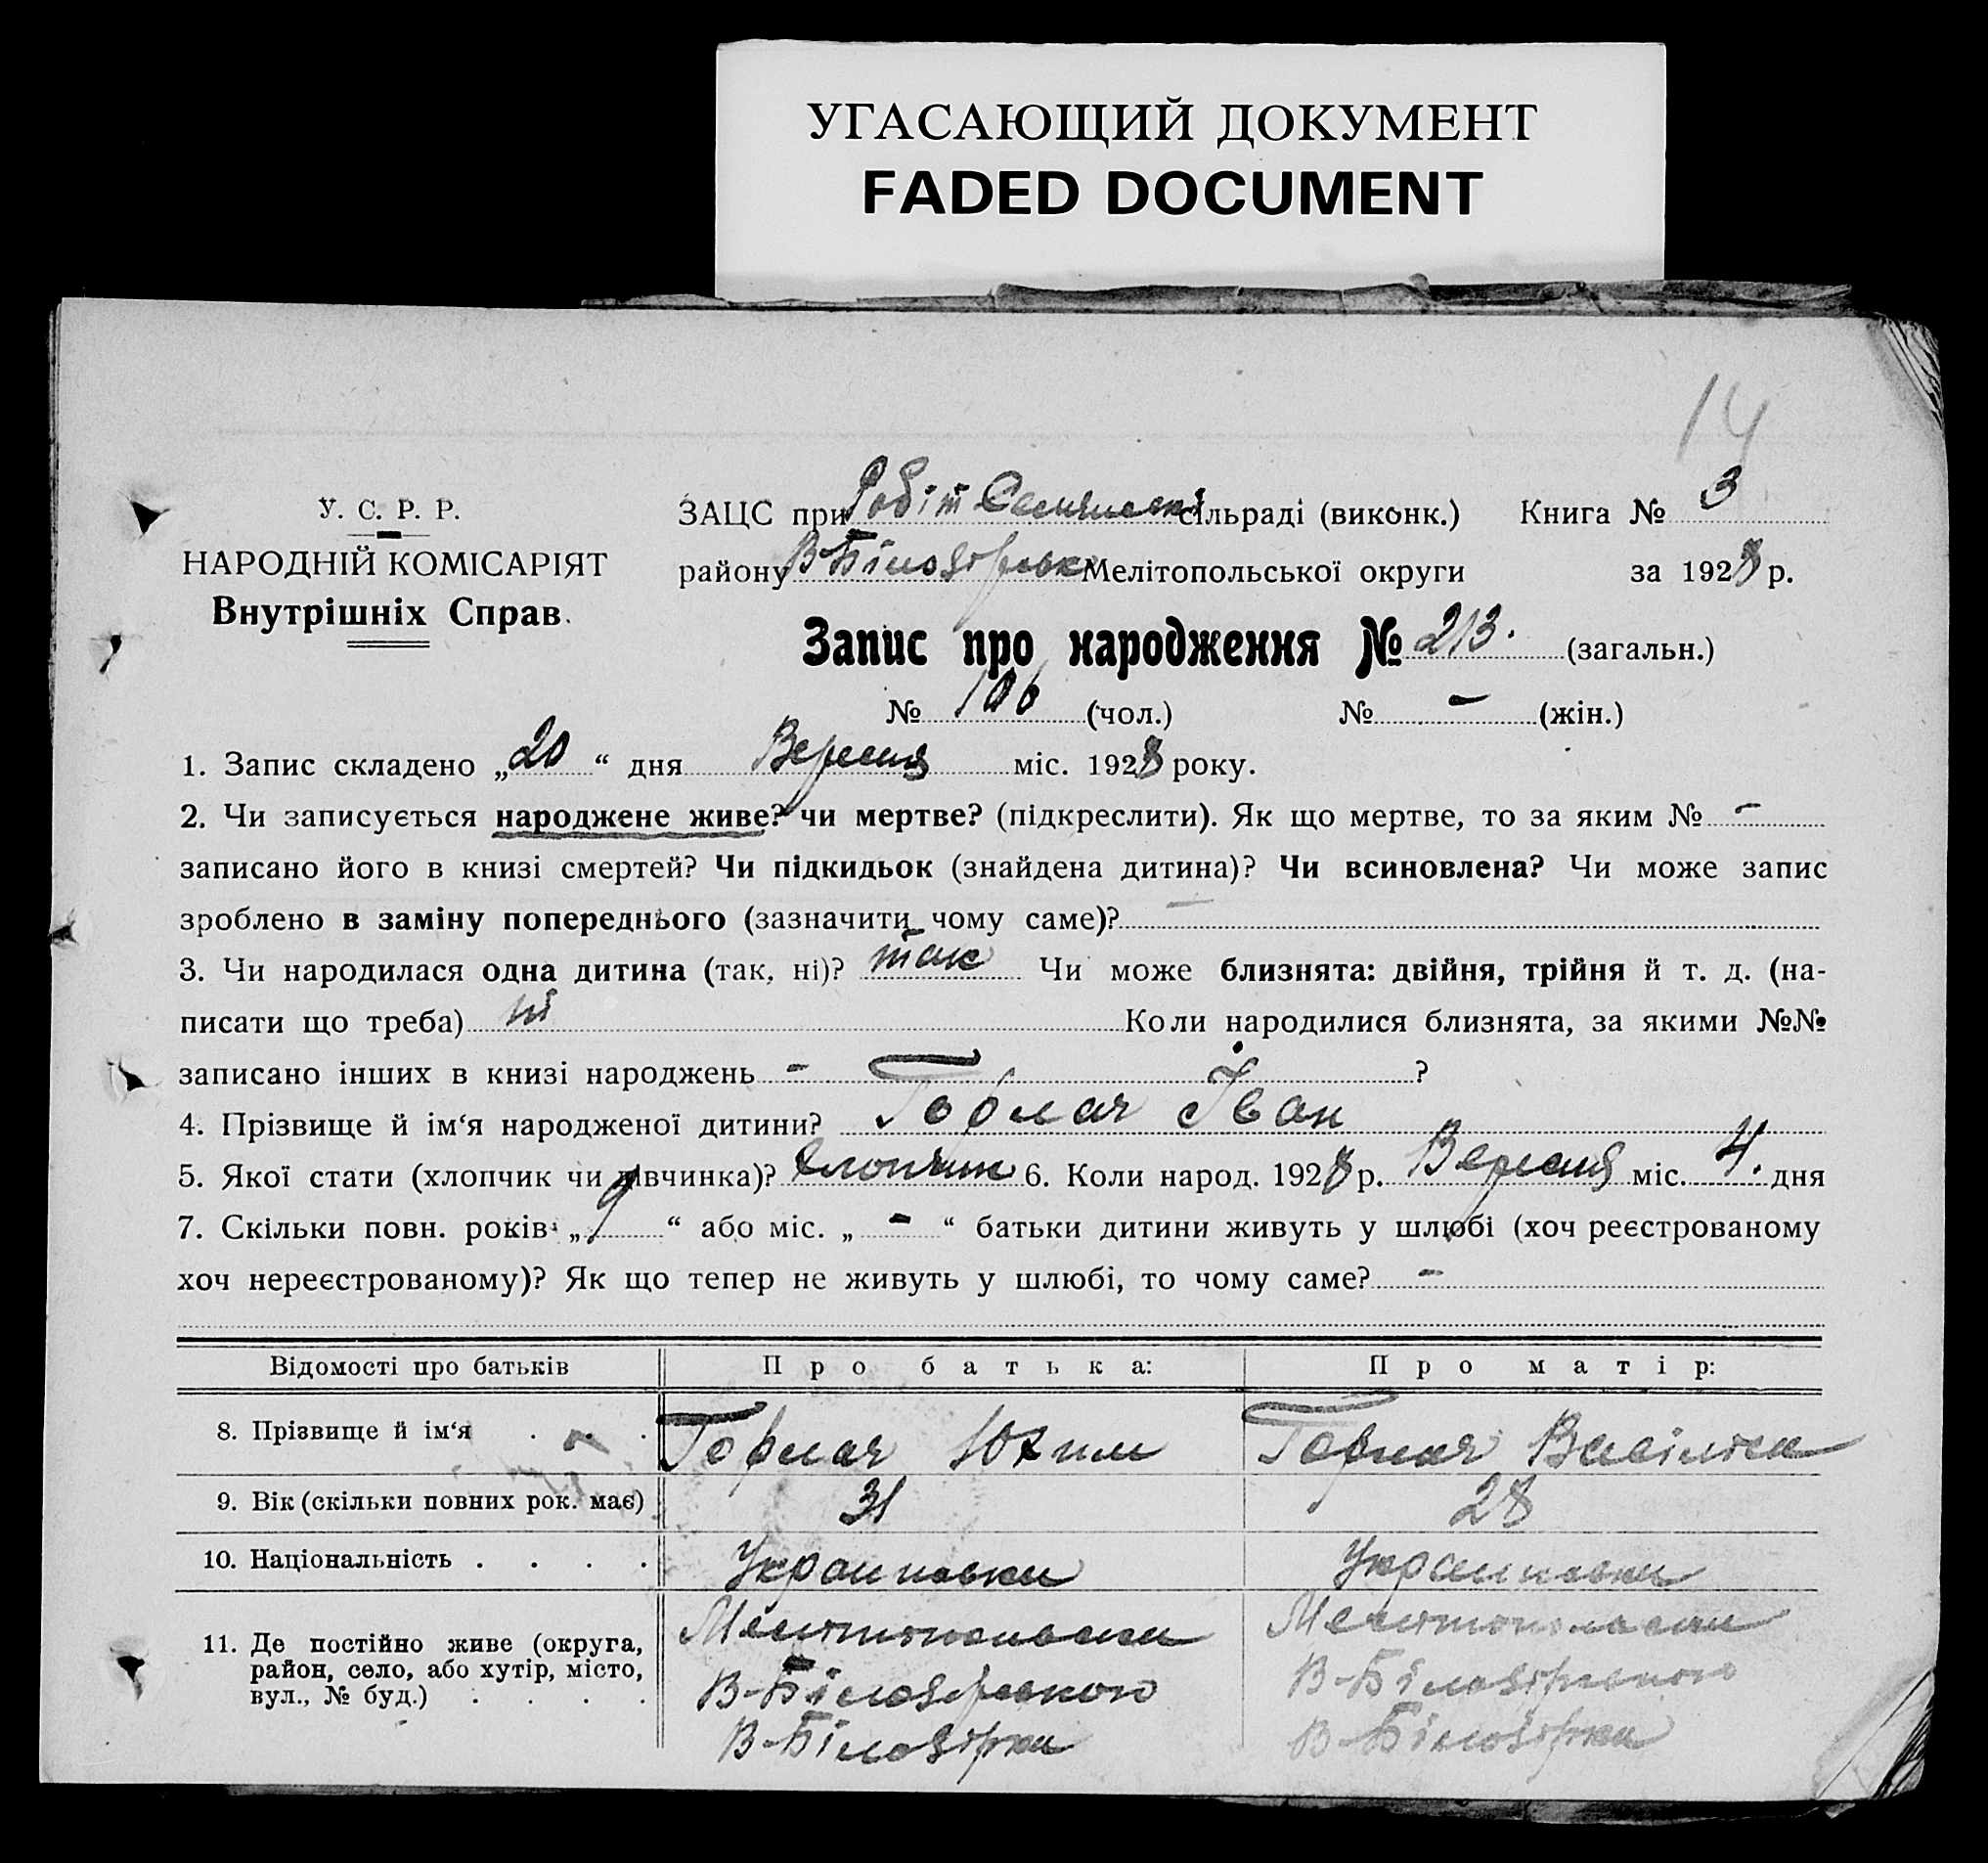 УГАСАЮЩИЙ ДОКУМЕНТ
FADED DOCUMENT
14
У. С. Р. Р.
НАРОДНІЙ КОМІСАРІЯТ
Внутрішніх Справ.
ЗАЦС при Робіт сільраді (виконк.) Книга № 3
району В-Білозірськ Мелітопольської округи за 1928 р.
Запис про народження № 213. (загальн.)
№ 106 (чол.) № - (жін.)
1. Запис складено „20“ дня Вересня міс. 1928 року.
2. Чи записується народжене живе? чи мертве? (підкреслити). Як що мертве, то за яким № -
записано його в книзі смертей? Чи підкидьок (знайдена дитина)? Чи всиновлена? Чи може запис
зроблено в заміну попереднього (зазначити чому саме)? -
3. Чи народилася одна дитина (так, ні)? так Чи може близнята: двійня, трійня й т. д. (на-
писати що треба) ні Коли народилися близнята, за якими №№
записано інших в книзі народжень - ?
4. Прізвище й ім‘я народженої дитини? Горлач Іван
5. Якої стати (хлопчик чи дівчинка)? хлопчик 6. Коли народ. 1928 р. Вересня міс. 4. дня
7. Скільки повн. років „9“ або міс. „-“ батьки дитини живуть у шлюбі (хоч реєстрованому
хоч нереєстрованому)? Як що тепер не живуть у шлюбі, то чому саме? -
Відомості про батьків Про батька: Про матір:
8. Прізвище й ім‘я . . . Горлач Юхим Горлач
9. Вік (скільки повних рок. має) 31 28
10. Національність . . . .
11. Де постійно живе (округа,
район, село, або хутір, місто,
вул., № буд.) . . . .
Мелітопольська Мелітопольська
В-Білозірського В-Білозірського
В-Білозірка В-Білозірка